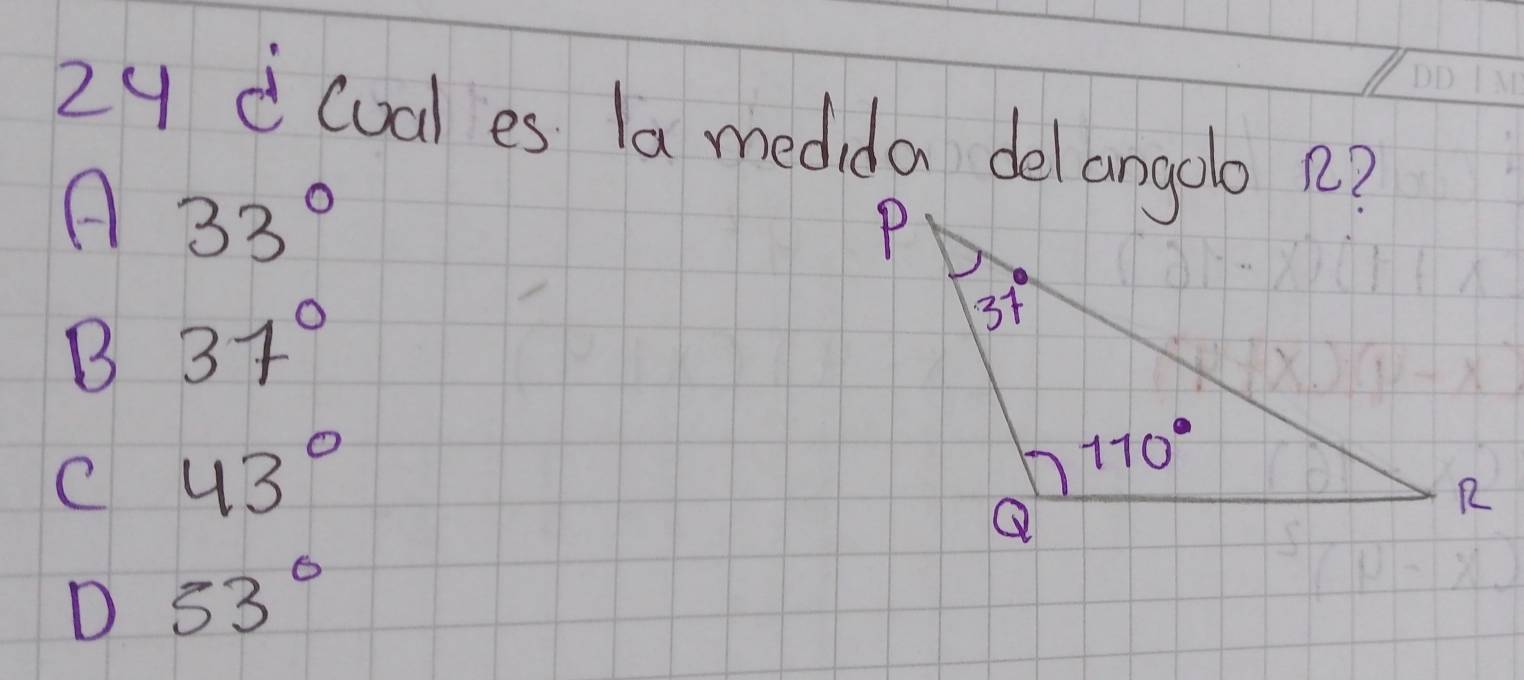 24 ¿Cual es la medida del angolo R?
A 33°
B 37°
C 43°
D 53°
P
37°
110°
Q
R
DD / M